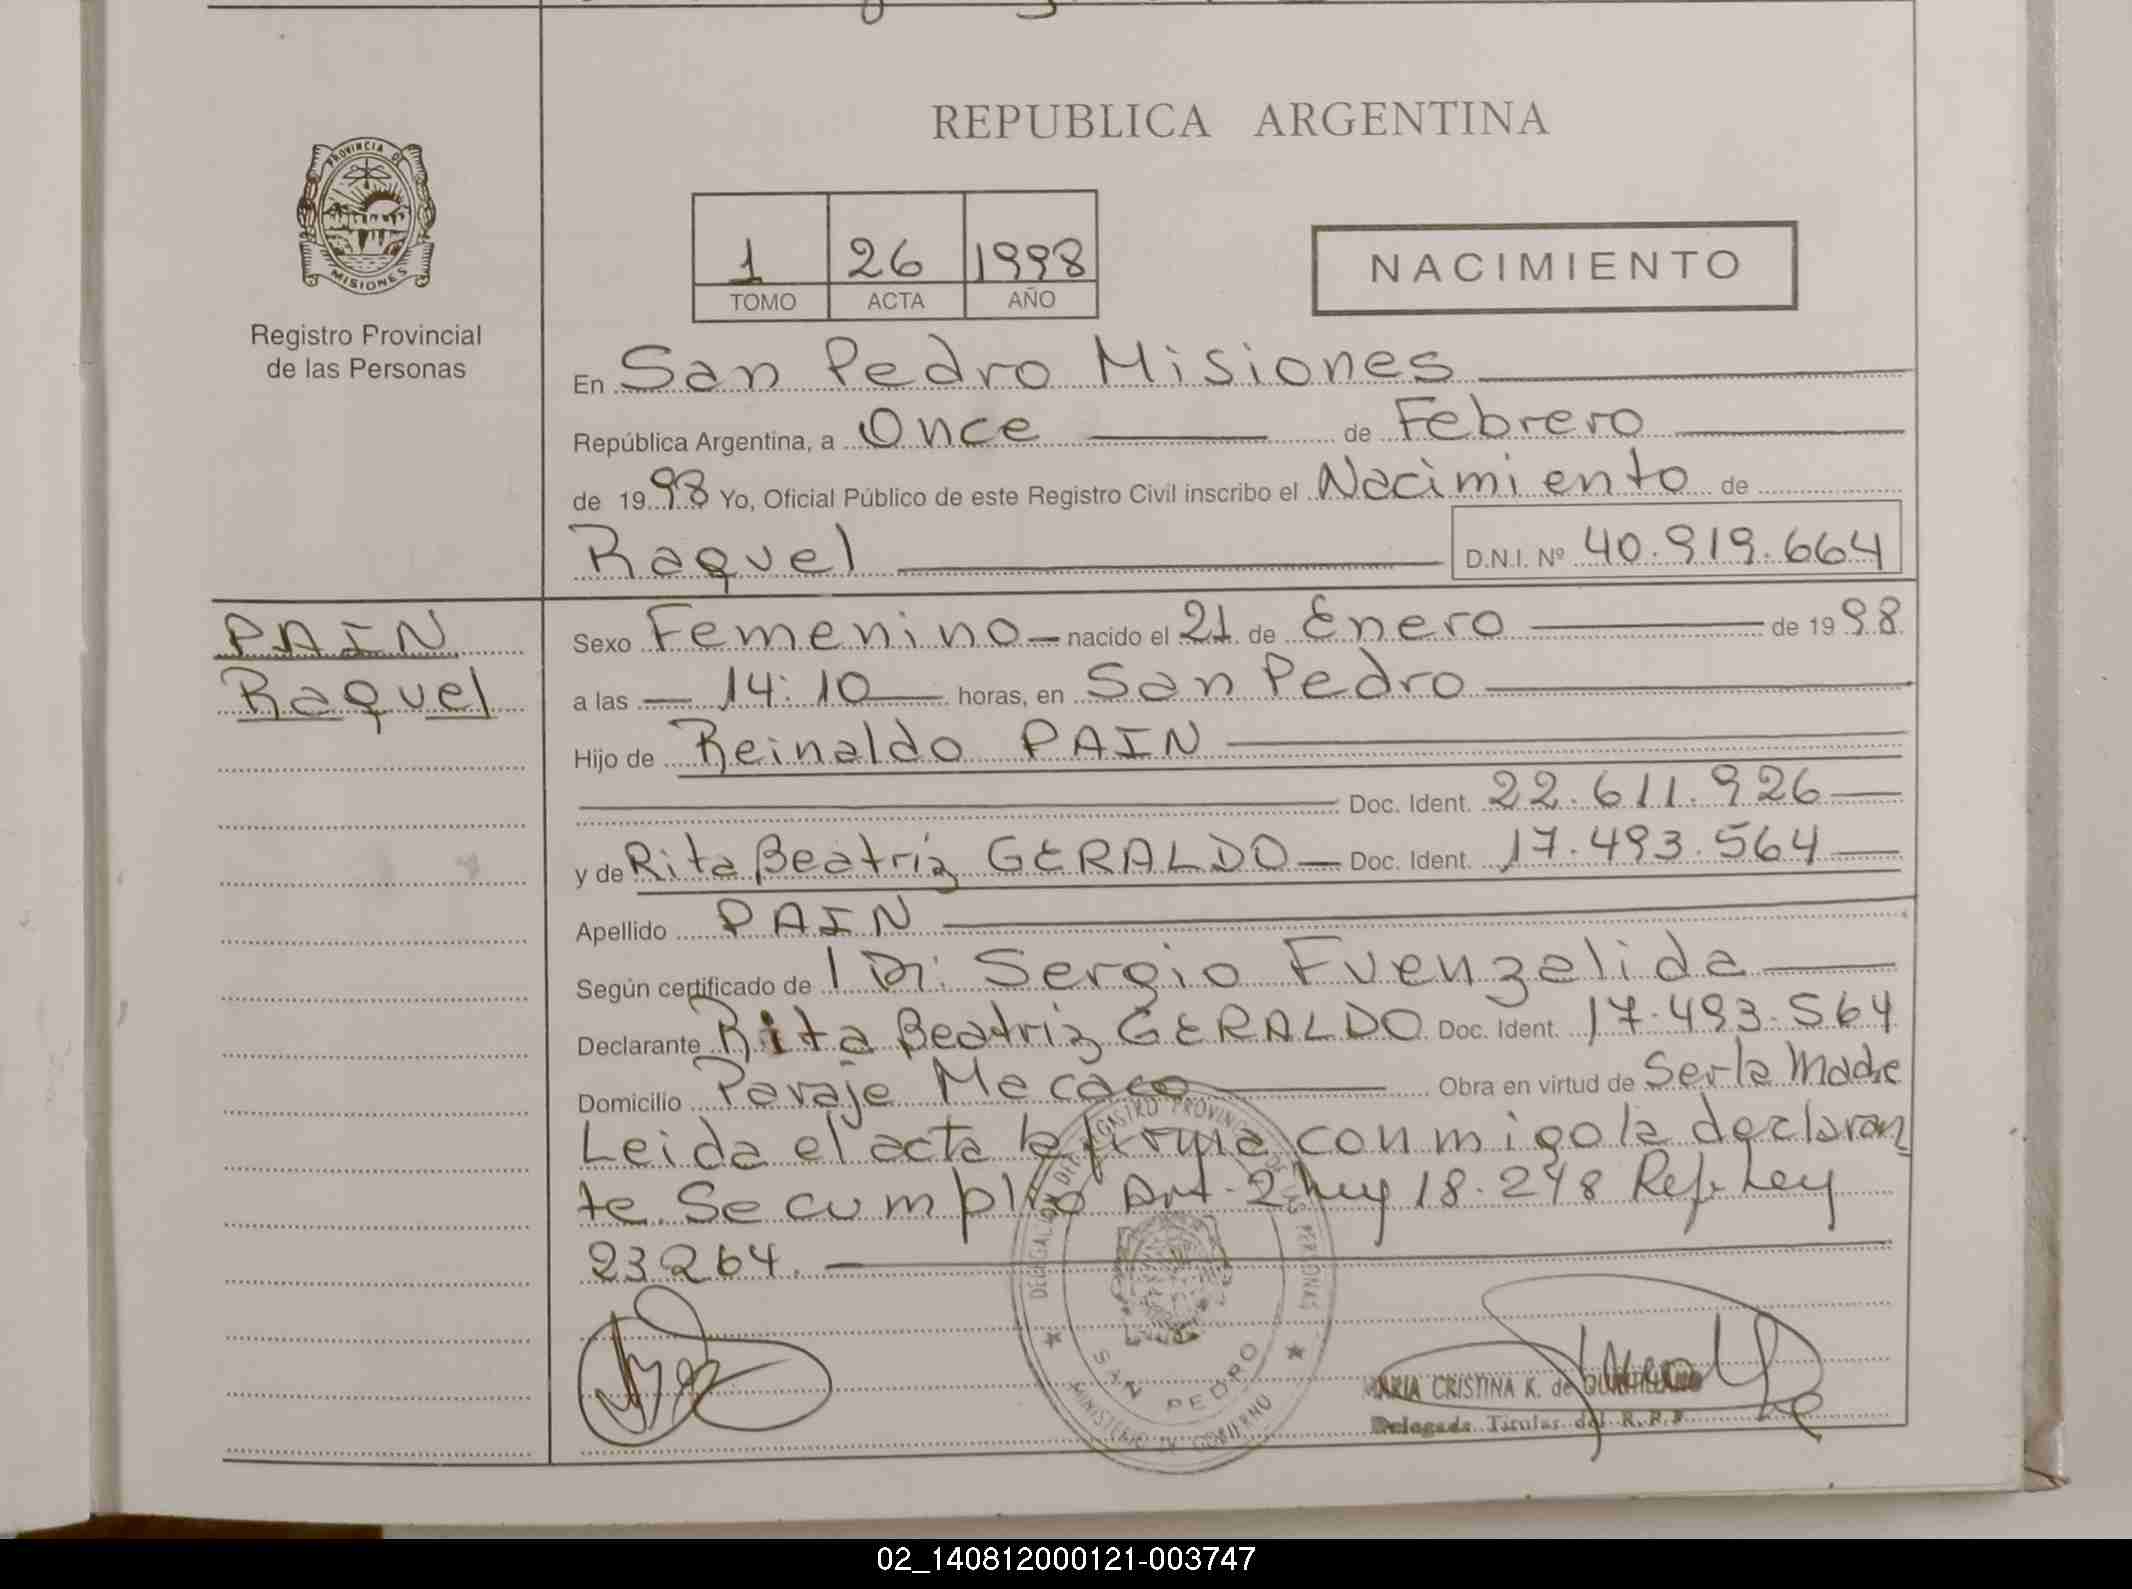 REPUBLICA ARGENTINA
PROVINCIA DE
MISIONES
Registro Provincial
de las Personas
1 26 1998
TOMO ACTA AÑO
NACIMIENTO
En San Pedro Misiones
República Argentina, a Once de Febrero
de 1998 Yo, Oficial Público de este Registro Civil inscribo el Nacimiento de
Raquel D.N.I. Nº 40.919.664
PAIN
Raquel
Sexo Femenino nacido el 21 de Enero de 1998
a las 14:10 horas, en San Pedro
Hijo de Reinaldo PAIN
Doc. Ident. 22.611.926
y de Rita Beatriz GERALDO Doc. Ident. 17.493.564
Apellido PAIN
Según certificado de Dr. Sergio Fuenzalida
Declarante Rita Beatriz GERALDO Doc. Ident. 17.493.564
Domicilio Paraje Macaco Obra en virtud de Ser la Madre
Leida el acta la firma conmigo la declaran
te. Se cumplio Art. 2 Ley 18.248 Ref. Ley
23264.
DELEGACION DEL REGISTRO PROVINCIAL DE LAS PERSONAS
SAN PEDRO
MINISTERIO DE GOBIERNO
MARIA CRISTINA K. de
Delegada Titular del R.P.P.
02_140812000121-003747